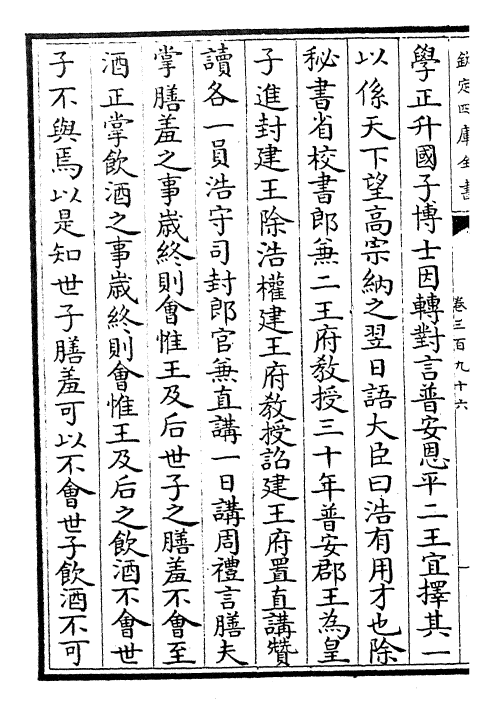 欽定四庫全書
卷三百九十六
學正升國子博士因轉對言普安恩平二王宜擇其一
以係天下望高宗納之翌日語大臣曰浩有用才也除
秘書省校書郎兼二王府教授三十年普安郡王為皇
子進封建王除浩權建王府教授詔建王府置直講贊
讀各一員浩守司封郎官兼直講一日講周禮言膳夫
掌膳羞之事歲終則會惟王及后世子之膳羞不會至
酒正掌飲酒之事歲終則會惟王及后之飲酒不會世
子不與焉以是知世子膳羞可以不會世子飲酒不可